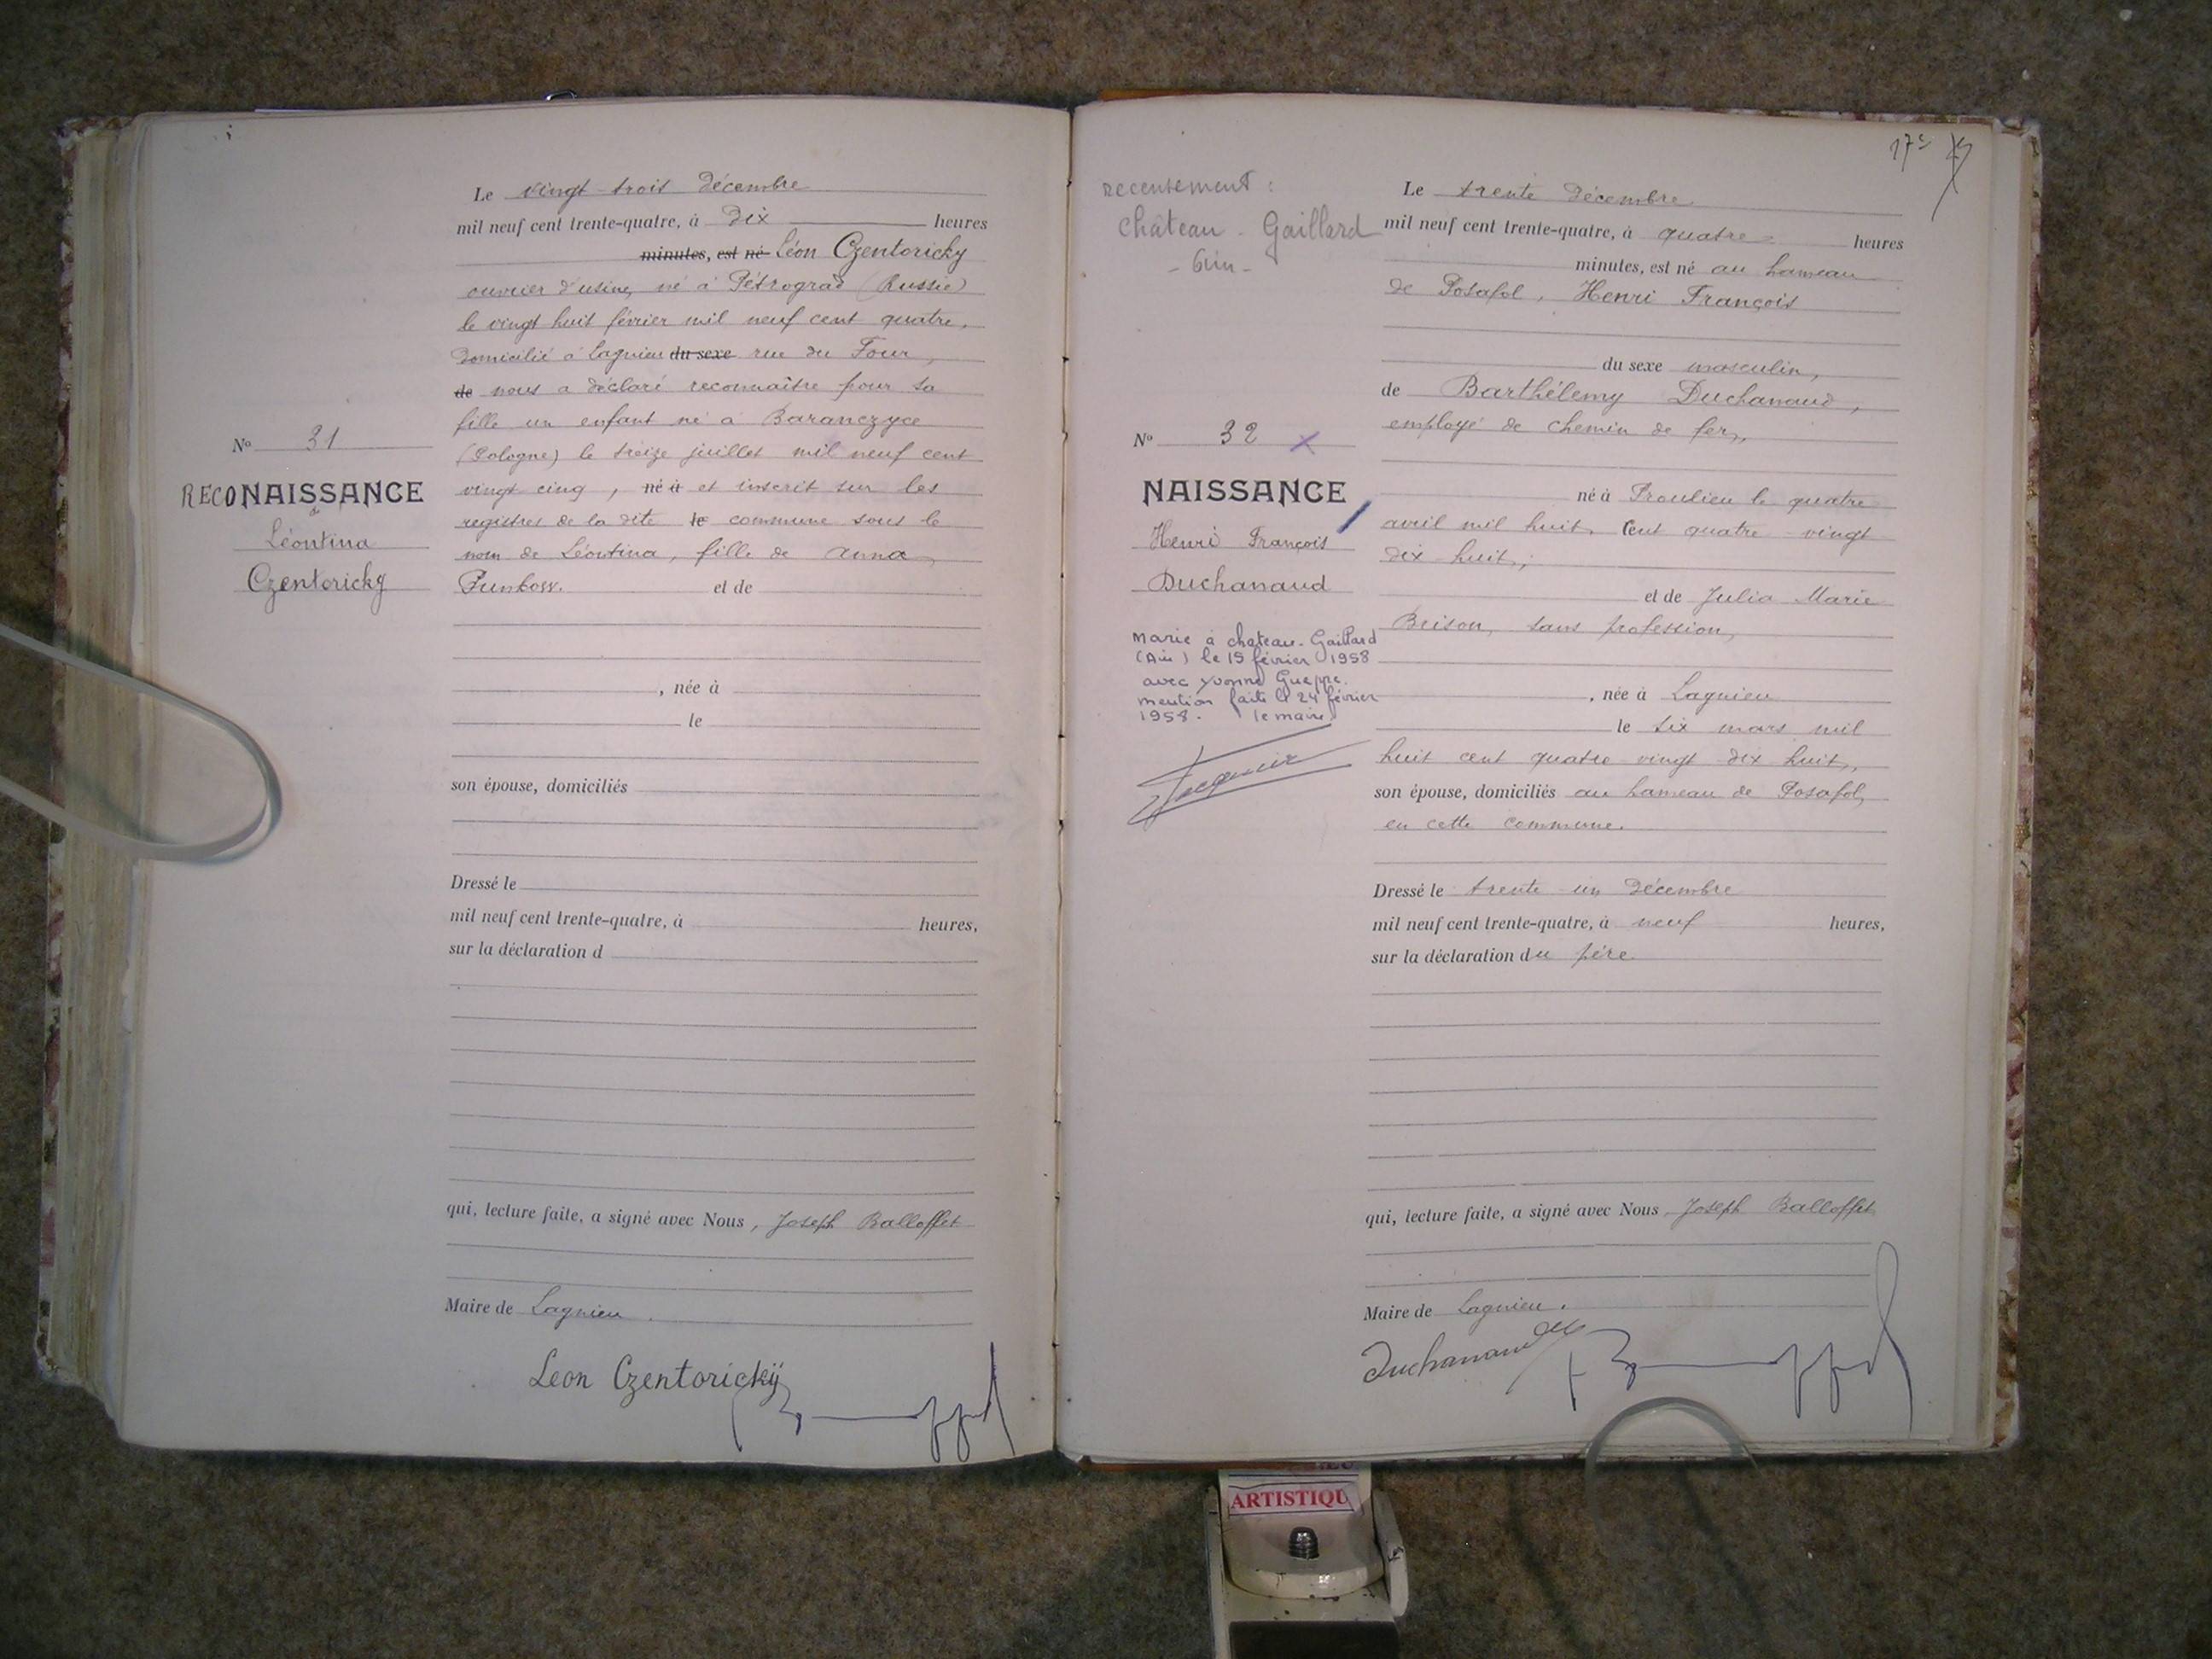 Le vingt-trois décembre
mil neuf cent trente-quatre, à dix heures
minutes, est né Léon Czentoricky
ouvrier d'usine, né à Pétrograd (Russie)
le vingt huit février mil neuf cent quatre,
domicilié à Lagnieu du sexe rue du Four,
de nous a déclaré reconnaître pour sa
fille un enfant né à Baranczyce
(Pologne) le treize juillet mil neuf cent
vingt cinq, né à et inscrit sur les
registres de la dite le commune sous le
nom de Léontina, fille de Anna
Funbow. et de
, née à
le
son épouse, domiciliés
Dressé le
mil neuf cent trente-quatre, à heures,
sur la déclaration d
qui, lecture faite, a signé avec Nous, Joseph Balloffet
Maire de Lagnieu.
Leon Czentoricky
No 31
RECONAISSANCE
Léontina
Czentoricky
175
recensement :
Château-Gaillard
- Ain -
No 32 X
NAISSANCE
Henri François
Duchanaud
Marié à chateau-Gaillard
(Ain) le 15 février 1958
avec Yvonne Gueppe.
mention faite le 24 février
1958. le maire.
Le trente décembre
mil neuf cent trente-quatre, à quatre heures
minutes, est né au hameau
de Posafol, Henri François
du sexe masculin,
de Barthélemy Duchanaud,
employé de chemin de fer,
né à Proulieu le quatre
avril mil huit cent quatre-vingt
dix-huit,
et de Julia Marie
Brison, sans profession,
, née à Lagnieu
le six mars mil
huit cent quatre-vingt dix huit,
son épouse, domiciliés au hameau de Posafol,
en cette commune.
Dressé le trente un décembre
mil neuf cent trente-quatre, à neuf heures,
sur la déclaration du père.
qui, lecture faite, a signé avec Nous, Joseph Balloffet
Maire de Lagnieu.
Duchanaud
ARTISTIQU